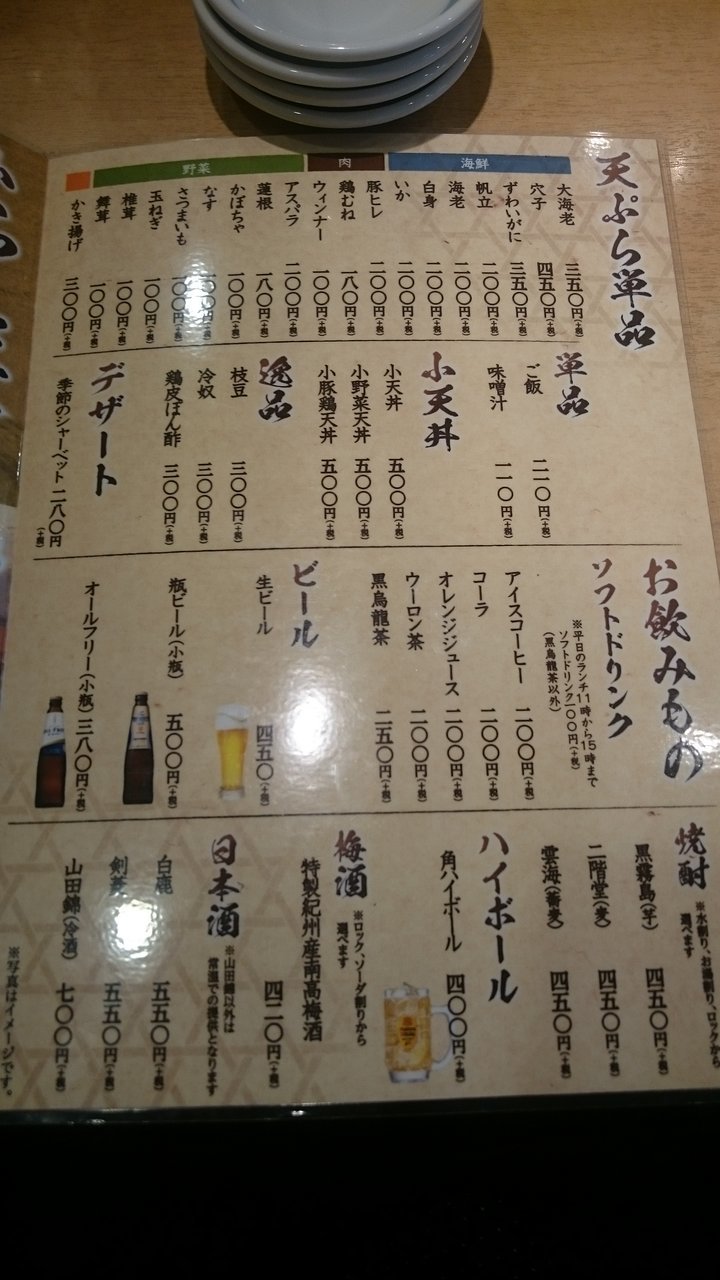 天ぷら単品
海鮮
大海老 三五〇円(+税)
穴子 四五〇円(+税)
ずわいがに 三五〇円(+税)
帆立 二〇〇円(+税)
海老 二〇〇円(+税)
白身 二〇〇円(+税)
いか 二〇〇円(+税)
肉
豚ヒレ 二〇〇円(+税)
鶏むね 一八〇円(+税)
ウィンナー 一〇〇円(+税)
野菜
アスパラ 二〇〇円(+税)
蓮根 一八〇円(+税)
かぼちゃ 一〇〇円(+税)
なす 一〇〇円(+税)
さつまいも 一〇〇円(+税)
玉ねぎ 一〇〇円(+税)
椎茸 一〇〇円(+税)
舞茸 一〇〇円(+税)
かき揚げ 三〇〇円(+税)
単品
ご飯 二一〇円(+税)
味噌汁 一一〇円(+税)
小天丼
小天丼 五〇〇円(+税)
小野菜天丼 五〇〇円(+税)
小豚鶏天丼 五〇〇円(+税)
逸品
枝豆 三〇〇円(+税)
冷奴 三〇〇円(+税)
鶏皮ぽん酢 三〇〇円(+税)
デザート
季節のシャーベット 二八〇円(+税)
お飲みもの
ソフトドリンク
※平日のランチ11時から15時まで
ソフトドリンク一〇〇円(+税)
(黒烏龍茶以外)
アイスコーヒー 二〇〇円(+税)
コーラ 二〇〇円(+税)
オレンジジュース 二〇〇円(+税)
ウーロン茶 二〇〇円(+税)
黒烏龍茶 二五〇円(+税)
ビール
生ビール 四五〇円(+税)
瓶ビール(小瓶) 五〇〇円(+税)
オールフリー(小瓶) 三八〇円(+税)
焼酎
※水割り、お湯割り、ロックから
選べます
黒霧島(芋) 四五〇円(+税)
二階堂(麦) 四五〇円(+税)
雲海(蕎麦) 四五〇円(+税)
ハイボール
角ハイボール 四〇〇円(+税)
梅酒
※ロック、ソーダ割りから
選べます
特製紀州産南高梅酒 四二〇円(+税)
日本酒
※山田錦以外は
常温での提供となります
白鹿 五五〇円(+税)
剣菱 五五〇円(+税)
山田錦(冷酒) 七〇〇円(+税)
※写真はイメージです。